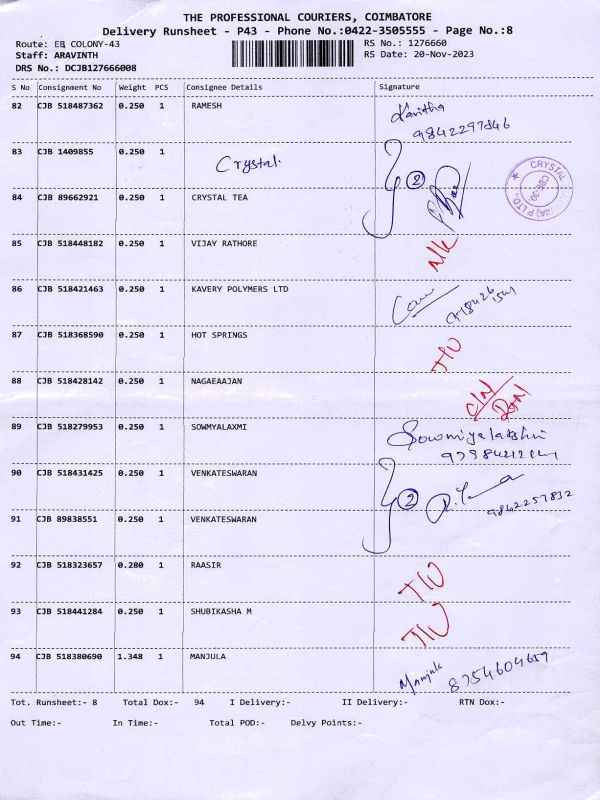 THE PROFESSIONAL COURIERS, COIMBATORE
Delivery Runsheet - P43 - Phone No.:0422-3505555 - Page No.:8
Route: EB COLONY-43 RS No.: 1276660
Staff: ARAVINTH RS Date: 20-Nov-2023
DRS No.: DCJB127666008
S No Consignment No Weight PCS Consignee Details Signature
82 CJB 518487362 0.250 1 RAMESH Kavitha
9842297846
83 CJB 1409855 0.250 1 Crystal.
2
CRYSTAL
84 CJB 89662921 0.250 1 CRYSTAL TEA
85 CJB 518448182 0.250 1 VIJAY RATHORE N/K
86 CJB 518421463 0.250 1 KAVERY POLYMERS LTD
87 CJB 518368590 0.250 1 HOT SPRINGS
88 CJB 518428142 0.250 1 NAGAEAAJAN
89 CJB 518279953 0.250 1 SOWMYALAXMI Sowmiyalakshmi
90 CJB 518431425 0.250 1 VENKATESWARAN 2 9842257832
91 CJB 89838551 0.250 1 VENKATESWARAN
92 CJB 518323657 0.280 1 RAASIR
93 CJB 518441284 0.250 1 SHUBIKASHA M
94 CJB 518380690 1.348 1 MANJULA Manjula 8754604659
Tot. Runsheet:- 8 Total Dox:- 94 I Delivery:- II Delivery:- RTN Dox:-
Out Time:- In Time:- Total POD:- Delvy Points:-